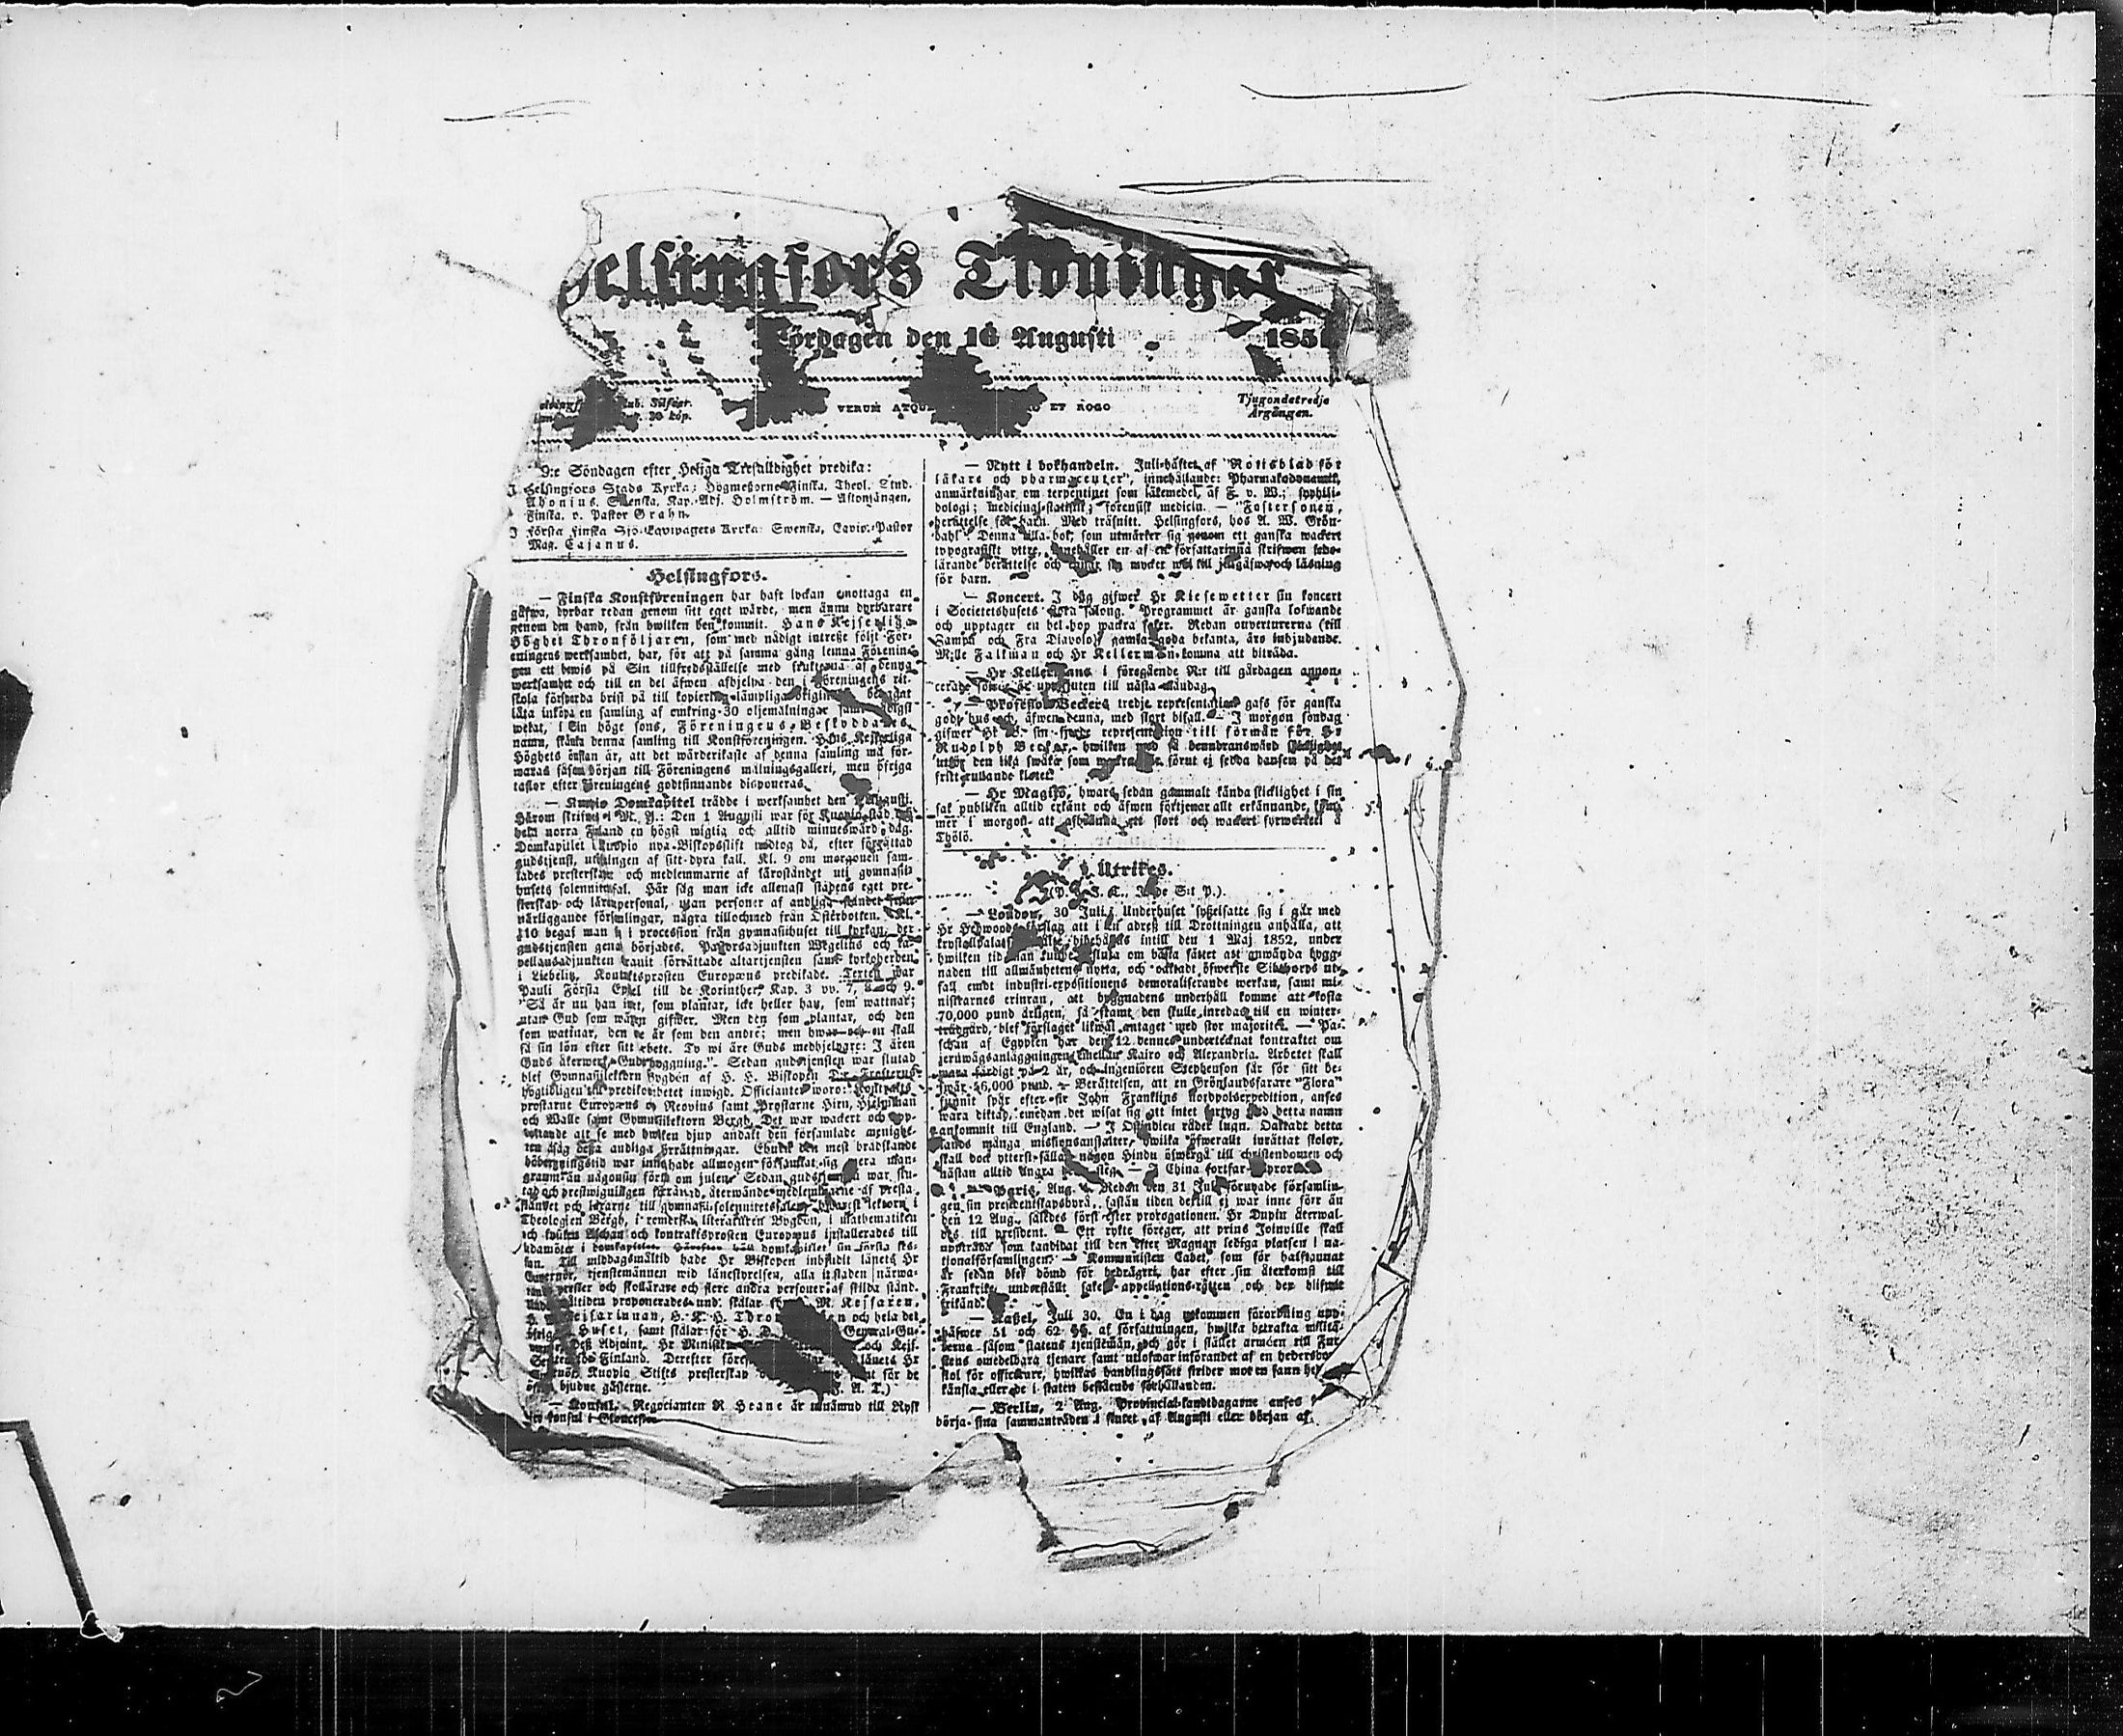 elsingfors Tidningar
Lördagen den 16 Augusti 185
Rub. Silfver.
20 kop.
VERUM ET ROGO
Tjugondetredje
Årgången.
9:e Söndagen efter Heliga Trefaldighet predika:
I Helsingfors Stads Kyrka: Högmeßorne Finska, Theol. Stud.
Ahonius, Swenska, Kap.-Adj. Holmström. — Aftonsången,
Finska, v. Pastor Grahn.
I Första Finska Sjö-Eqvipagets Kyrka: Swenska, Eqvip.-Pastor
Mag. Cajanus.
Helsingfors.
— Finska Konstföreningen har haft lyckan emottaga en
gåfwa, dyrbar redan genom sitt eget wärde, men ännu dyrbarare
genom den hand, från hwilken den kommit. Hans Kejserliga
Höghet Thronföljaren, som med nådigt intreße följt För-
eningens werksamhet, har, för att på samma gång lemna Förenin-
gen ett bewis på Sin tillfredsställelse med frukterna af denna
werksamhet och till en del äfwen afhjelpa den i Föreningens rit-
skola försporda brist på till kopiering lämpliga
låta inköpa en samling af omkring 30 oljemålningar samt
wetat, i Sin höge sons, Föreningens Beskyddares,
namn, skänka denna samling till Konstföreningen. Hans Kejserliga
Höghets önskan är, att det wärderikaste af denna samling må för-
waras såsom början till Föreningens målningsgalleri, men öfriga
taflor efter Föreningens godtfinnande disponeras.
— Kuopio Domkapitel trädde i werksamhet den Augusti.
Härom skrifwes i M. A.: Den 1 Augusti war för Kuopio stad och
hela norra Finland en högst wigtig och alltid minneswärd dag.
Domkapitlet i Kuopio nya Biskopsstift mottog då, efter förrättad
gudstjenst, utöfningen af sitt dyra kall. Kl. 9 om morgonen sam-
lades presterskap och medlemmarne af läroståndet uti gymnasii-
husets solennitetssal. Här såg man icke allenast stadens eget pre-
sterskap och lärarpersonal, utan personer af andliga ståndet från
närliggande församlingar, några tillochmed från Österbotten. Kl.
10 begaf man sig i procession från gymnasiihuset till kyrkan, der
gudstjensten genast börjades. Pastorsadjunkten Wegelius och ka-
pellansadjunkten förrättade altartjensten samt kyrkoherden
i Liebelitz, Kontraktsprosten Europæus predikade. Texten war
Pauli Första Epistel till de Korinther, Kap. 3 vv. 7, 8 och 9.
"Så är nu han intet, som plantar, icke heller han, som wattnar;
utan Gud som wäxten gifwer. Men den som plantar, och den
som wattnar, den ene är som den andre; men hwar och en skall
få sin lön efter sitt arbete. Ty wi äre Guds medhjelpare: I ären
Guds åkerwerk, Guds byggning." Sedan gudstjensten war slutad
blef Gymnasiilektorn Bygdén af H. H. Biskopen D:r Frosterus
högtidligen till predikoembetet inwigd. Officianter woro: Kontrakts-
prostarne Europæus och Neovius samt Prostarne Hirn, Hjelmman
och Walle samt Gymnasiilektorn Bergh. Det war wackert och upp-
lyftande att se med hwilken djup andakt den församlade menighe-
ten åsåg deßa andliga förrättningar. Ehuru den mest brådskande
höbergningstid war innehade allmogen församlat sig flera man-
grannt än någonsin förr om julen. Sedan gudstjensten war slu-
tad och prestwigningen förrättad, återwände medlemmarne af Presta-
ståndet och lärarne till gymnasii-solennitetssalen, hwarest lektorn i
Theologien Bergh, i romerska literaturen Bygdén, i mathematiken
och fysiken Aschan och kontraktsprosten Europæus installerades till
ledamöter i domkapitlet. Härefter höll domkapitlet sin första ses-
sion. Till middagsmåltid hade Hr Biskopen inbjudit länets Hr
Guvernör, tjenstemännen wid länestyrelsen, alla i staden närwa-
rande prester och skollärare och flere andra personer af skilda stånd.
Under måltiden proponerades und. skålar för H. M. Kejsaren,
H. M. Kejsarinnan, H. K. H. Thronföljaren och hela det
öfriga Huset, samt skålar för General-Gu-
vernör, Deß Adjoint, Hr Ministern och Kejs.
Senaten för Finland. Derefter länets Hr
Guvernör, Kuopio Stifts presterskap samt för de
öfriga bjudne gästerne. (F. A. T.)
— Konsul. Negocianten R. Heane är utnämnd till Rysk
vice konsul i Gloucester.
— Nytt i bokhandeln. Juli-häftet af "Notisblad för
läkare och pharmaceuter", innehållande: Pharmakodynamik,
anmärkningar om terpentinet som läkemedel, af F. v. W.; syphili-
dologi; medicinal-statistik; forensisk medicin. — "Fostersonen,
berättelse för barn. Med träsnitt. Helsingfors, hos A. W. Grön-
dahl". Denna lilla bok, som utmärker sig genom ett ganska wackert
typografiskt yttre, innehåller en af en författarinna skrifwen sede-
lärande berättelse och egnar sig mycket wäl till julgåfwa och läsning
för barn.
— Koncert. I dag gifwer Hr Kiesewetter sin koncert
i Societetshusets stora salong. Programmet är ganska lofwande
och upptager en hel hop wackra saker. Redan ouverturerna (till
Zampa och Fra Diavolo) gamla goda bekanta, äro inbjudande.
M:lle Falkman och Hr Kellerman komma att biträda.
— Hr Kellermans i föregående N:r till gårdagen annon-
cerade soirée är uppskjuten till nästa Måndag.
— Profeßor Beckers tredje representation gafs för ganska
godt hus och, äfwen denna, med stort bifall. — I morgon söndag
gifwer Hr B. sin fjerde representation till förmån för Hr
Rudolph Becker, hwilken med så beundranswärd skicklighet
utför den lika swåra som wackra förut ej sedda dansen på det
fritt rullande klotet.
— Hr Magito, hwars sedan gammalt kända skicklighet i sin
sak publiken alltid erkänt och äfwen förtjenar allt erkännande, kom-
mer i morgon att afbränna ett stort och wackert fyrwerkeri å
Thölö.
Utrikes.
— London, 30 Juli. Underhuset syßelsatte sig i går med
Hr Heywoods förslag att i en adreß till Drottningen anhålla, att
krystallpalatset måtte bibehållas intill den 1 Maj 1852, under
hwilken tid man kunde besluta om bästa sättet att använda bygg-
naden till allmänhetens nytta, och oaktadt öfwerste Sibthorps ut-
fall emot industri-expositionens demoraliserande werkan, samt mi-
nistrarnes erinran, att byggnadens underhåll komme att kosta
70,000 pund årligen, så framt den skulle inredas till en winter-
trädgård, blef förslaget likwäl antaget med stor majoritet. — Pa-
schan af Egypten har den 12 dennes undertecknat kontraktet om
jernwägsanläggningen emellan Kairo och Alexandria. Arbetet skall
wara färdigt på 2 år, och ingeniören Stephenson får för sitt be-
swär 56,000 pund. — Berättelsen, att en Grönlandsfarare "Flora"
funnit spår efter sir John Franklins Nordpolsexpedition, anses
wara diktad, emedan det wisat sig att intet fartyg med detta namn
ankommit till England. — I Ostindien råder lugn. Oaktadt detta
lands många missionsanstalter, hwilka öfwerallt inrättat skolor,
skall dock ytterst sällan någon Hindu öfwergå till christendomen och
nästan alltid ångra steg. — I China fortfar uproret.
— Paris, Aug. Redan den 31 Juli förnyade församlin-
gen sin presidentskapsbyrå, fastän tiden dertill ej war inne förr än
den 12 Aug., således först efter prorogationen. Hr Dupin återwal-
des till president. — Ett rykte föreger, att prins Joinville skall
uppträda som kandidat till den efter Magnan lediga platsen i na-
tionalförsamlingen. — Kommunisten Cabet, som för halftannat
år sedan blef dömd för bedrägeri, har efter sin återkomst till
Frankrike underställt saken appellations-rätten och der blifwit
frikänd.
— Kaßel, Juli 30. En i dag utkommen förordning upp-
häfwer 51 och 62 §§. af författningen, hwilka betrakta militä-
rerna såsom statens tjenstemän, och gör i stället armeen till Fur-
stens omedelbara tjenare samt utlofwar införandet af en hedersdom-
stol för officerare, hwilkas handlingssätt strider mot en sann
känsla eller de i staten bestående förhållanden.
— Berlin, 2 Aug. Provincial-landtdagarne anses
börja sina sammanträden i slutet af Augusti eller början af